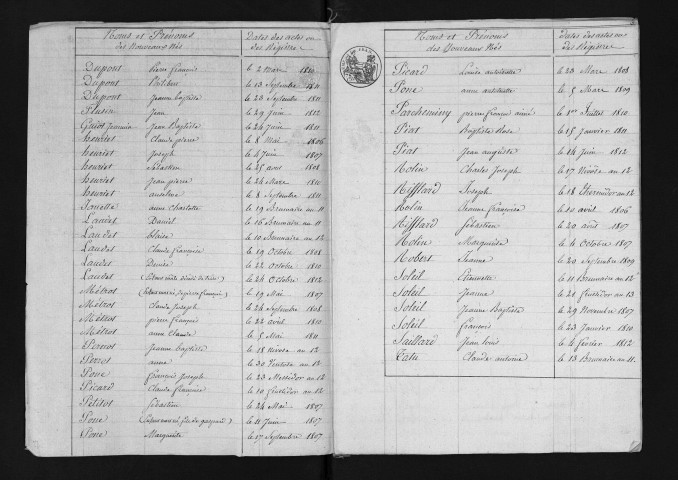 Noms et Prénoms des Nouveaux Nés
Dates des actes ou des Registres
Dupont pierre françois le 2 Mars 1810
Dupont le 13 Septembre 1811
Dupont Jeanne baptiste le 23 Septembre 1811
Jean le 29 Juin 1812
Jean Baptiste le 24 Juin 1811
henriet Claude pierre le 8 Mai 1806
henriet Joseph le 4 Juin 1807
henriet Sébastien le 25 aout 1808
henriet Jean pierre le 24 Mars 1810
henriet anselme le 8 Septembre 1811
anne Charlotte le 19 Brumaire an 11
Laudet Daniel le 16 Brumaire an 11
Laudet blaise le 10 Brumaire an 12
Laudet Claude françoise le 19 Octobre 1808
Laudet Denise le 22 Octobre 1810
Laudet le 24 Octobre 1812
Métros le 19 Mai 1807
Métros Claude Joseph le 24 Septembre 1808
Métros pierre françois le 22 avril 1810
Métros anne Claude le 5 Mai 1811
Perrot Jeanne baptiste le 18 Nivose an 12
Perrot anne le 30 Ventose an 12
Pone françois Joseph le 23 Messidor an 12
Picard Claude françoise le 10 fructidor an 12
Petitot Sébastien le 24 Mai 1807
Pone le 11 Juin 1807
Pone Marguerite le 27 Septembre 1807
Noms et Prénoms des Nouveaux Nés
Dates des actes ou des Registres
Picard Louise antoinette le 23 Mars 1808
Pone anne antoinette le 5 Mars 1809
Parcheminey pierre françois aimé le 1er Juillet 1810
Piat Baptiste Rose le 15 Janvier 1811
Piat Jean auguste le 14 Juin 1812
Rolin Charles Joseph le 17 Nivose an 12
Rifflard Joseph le 18 Thermidor an 12
Rolin Jeanne françoise le 10 avril 1806
Rifflard Sébastien le 20 avril 1807
Rolin Marguerite le 4 Octobre 1807
Robert Jeanne le 20 Septembre 1809
Soleil le 11 Brumaire an 12
Soleil Jeanne le 21 fructidor an 13
Soleil Jeanne Baptiste le 29 Novembre 1807
Soleil françois le 23 Janvier 1810
Jean louis le 4 fevrier 1812
Claude antoine le 13 Brumaire an 11